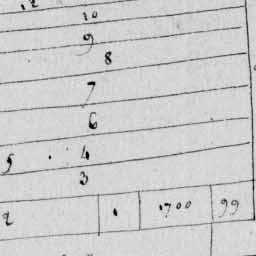 12
10
9
8
7
6
5 . 4
3
2 . 1700 99